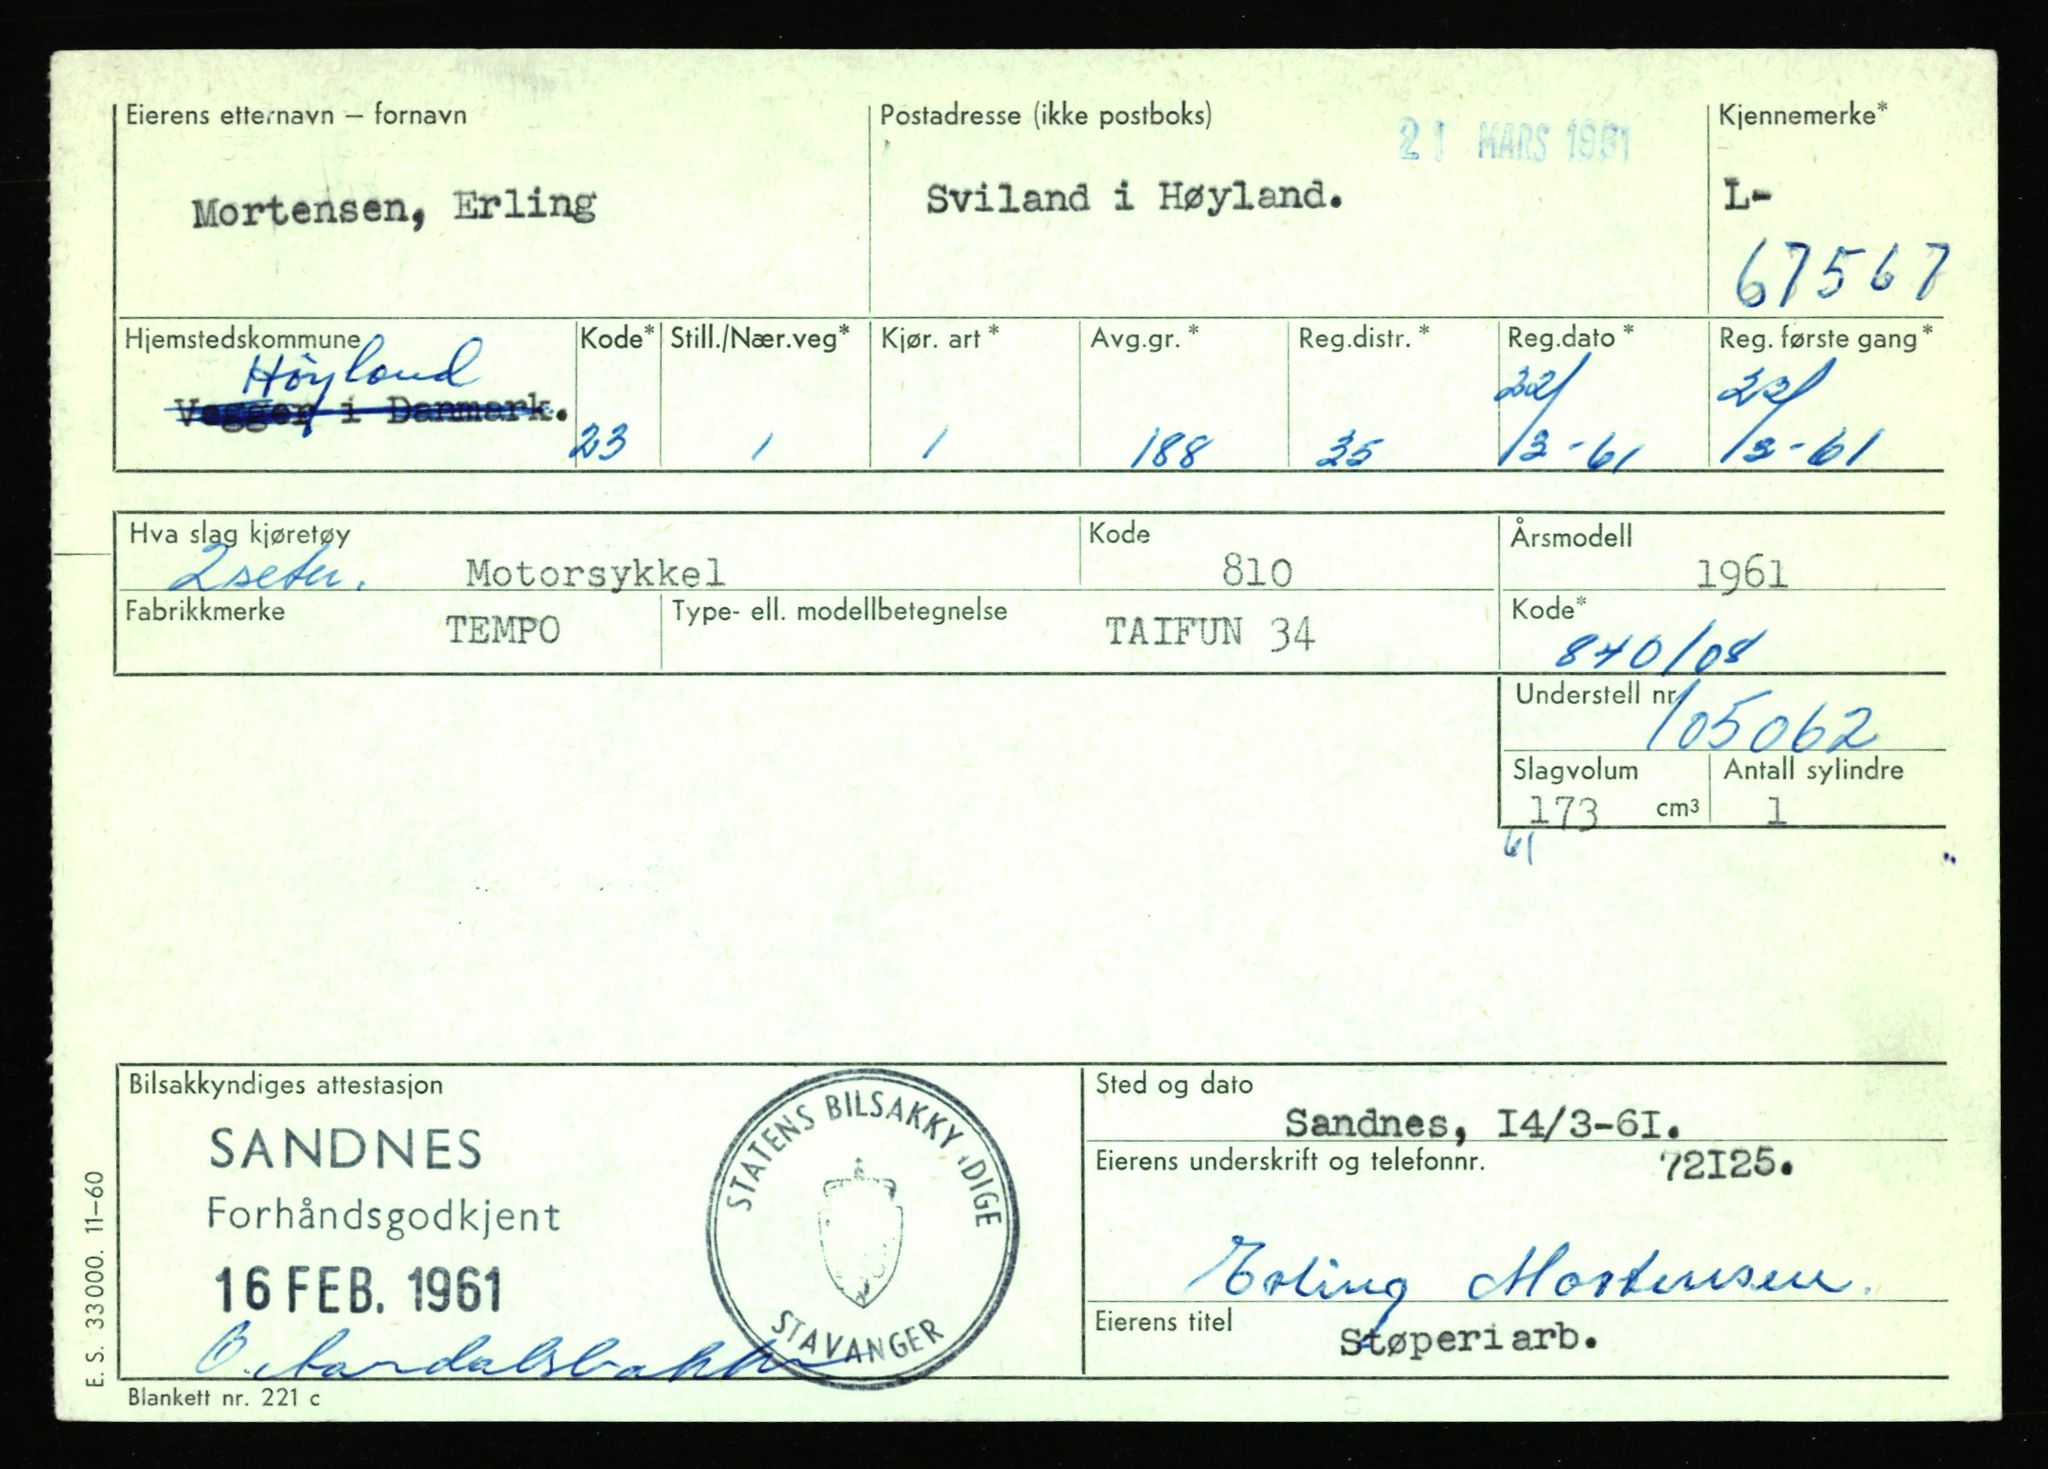 Eierens etternavn – fornavn
Postadresse (ikke postboks)
21 MARS 1961
Kjennemerke*
Mortensen, Erling
Sviland i Høyland.
L-
67567
Hjemstedskommune
Kode*
Still./Nær.veg*
Kjør. art *
Avg.gr. *
Reg.distr. *
Reg.dato *
Reg. første gang *
Høyland
Vegger i Danmark.
23
1
1
188
35
22/3-61
22/3-61
Hva slag kjøretøy
2seter. Motorsykkel
Kode
810
Årsmodell
1961
Fabrikkmerke
TEMPO
Type- ell. modellbetegnelse
TAIFUN 34
Kode*
840/08
Understell nr
105062
Slagvolum
173 cm³
Antall sylindre
1
61
Bilsakkyndiges attestasjon
SANDNES
Forhåndsgodkjent
16 FEB. 1961
STATENS BILSAKKYNDIGE
STAVANGER
Sted og dato
Sandnes, I4/3-6I.
Eierens underskrift og telefonnr.
72I25.
Erling Mortensen.
Eierens titel
Støperiarb.
E. S. 33000. 11–60
Blankett nr. 221 c